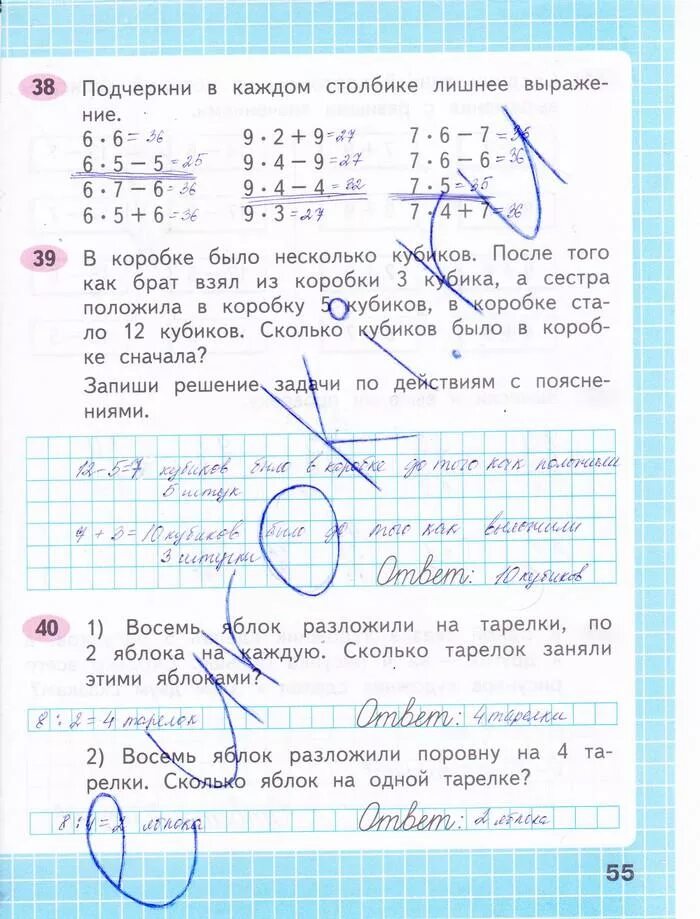 38 Подчеркни в каждом столбике лишнее выраже-
ние.
6 · 6 = 36 9 · 2 + 9 = 27 7 · 6 − 7 = 35
6 · 5 − 5 = 25 9 · 4 − 9 = 27 7 · 6 − 6 = 36
6 · 7 − 6 = 36 9 · 4 − 4 = 32 7 · 5 = 35
6 · 5 + 6 = 36 9 · 3 = 27 7 · 4 + 7 = 36
39 В коробке было несколько кубиков. После того
как брат взял из коробки 3 кубика, а сестра
положила в коробку 5 кубиков, в коробке ста-
ло 12 кубиков. Сколько кубиков было в короб-
ке сначала?
Запиши решение задачи по действиям с поясне-
ниями.
12-5=7 кубиков было в коробке до того как положили
5 штук
7 + 3 = 10 кубиков было до того как выложили
3 штуки
Ответ: 10 кубиков
40 1) Восемь яблок разложили на тарелки, по
2 яблока на каждую. Сколько тарелок заняли
этими яблоками?
8 : 2 = 4 тарелок Ответ: 4 тарелки
2) Восемь яблок разложили поровну на 4 та-
релки. Сколько яблок на одной тарелке?
8 : 4 = 2 яблока Ответ: 2 яблока
55